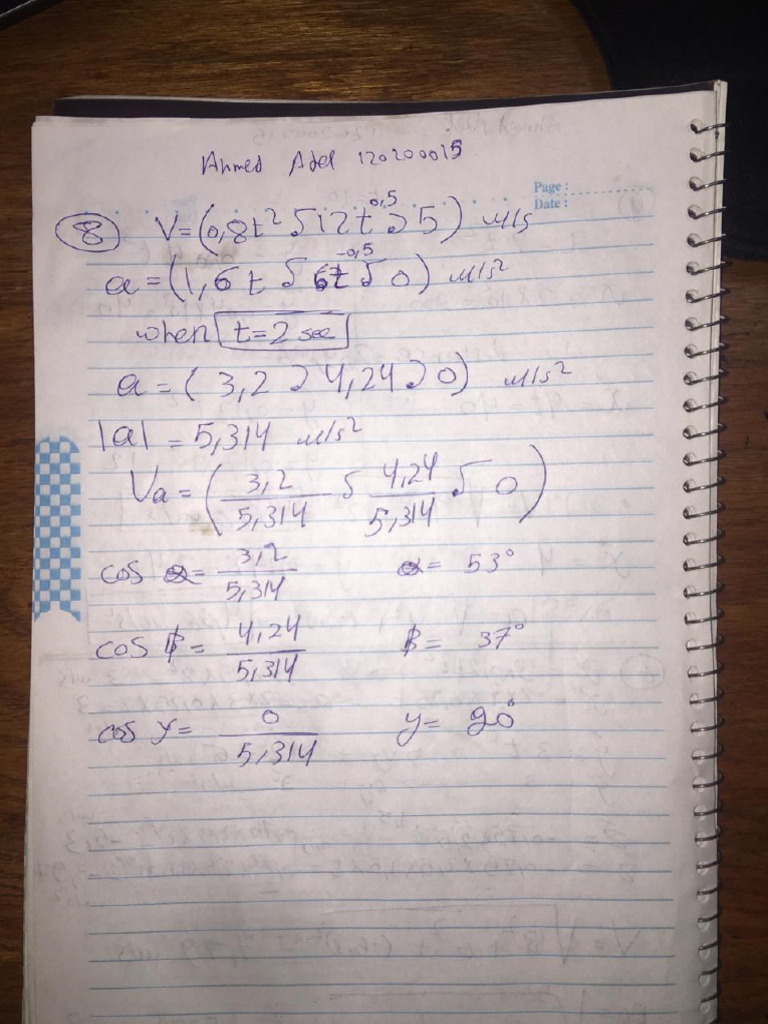 Ahmed Adel 120200015
Page :
Date :
8 V=(0,8t² , 12t^0,5 , 5) m/s
a=(1,6t , 6t^-0,5 , 0) m/s²
when t=2 sec
a=(3,2 , 4,24 , 0) m/s²
|a| = 5,314 m/s²
Va = (3,2/5,314 , 4,24/5,314 , 0)
cos α = 3,2/5,314 α = 53°
cos β = 4,24/5,314 β = 37°
cos y = 0/5,314 y = 90°